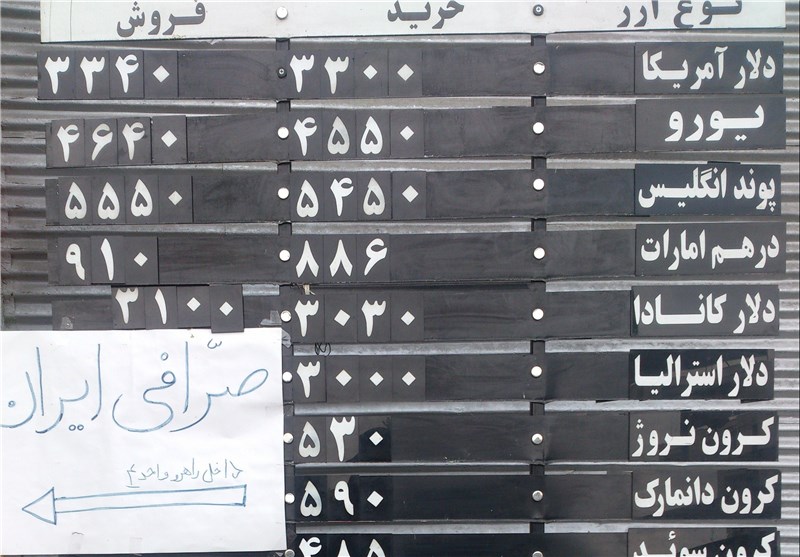 نوع ارز خرید فروش
دلار آمریکا ۳۳۰۰ ۳۳۴۰
یورو ۴۵۵۰ ۴۶۴۰
پوند انگلیس ۵۴۵۰ ۵۵۵۰
درهم امارات ۸۸۶ ۹۱۰
دلار کانادا ۳۰۳۰ ۳۱۰۰
دلار استرالیا ۳۰۰۰
کرون نروژ ۵۳۰
کرون دانمارک ۵۹۰
کرون سوئد ۴۸۵
صرّافی ایران
داخل راهرو واحد ۴